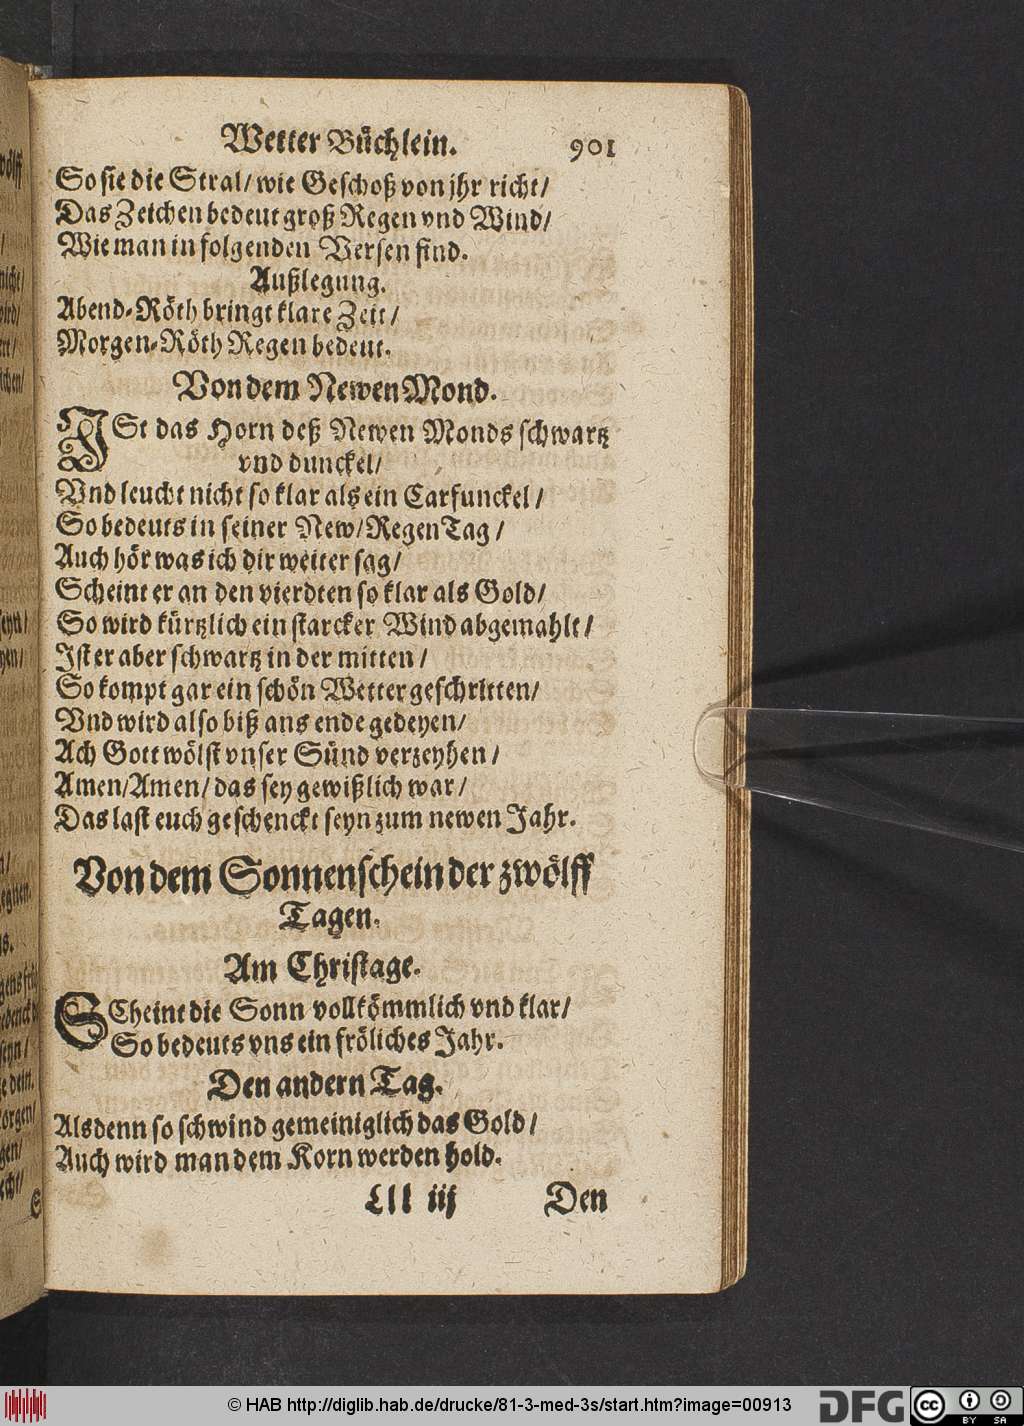 Wetter Büchlein. 901
So sie die Stral/ wie Geschoß von jhr richt/
Das Zeichen bedeut groß Regen vnd Wind/
Wie man in folgenden Versen find.
Außlegung.
Abend-Röth bringt klare Zeit/
Morgen-Röth Regen bedeut.
Von dem Newen Mond.
ISt das Horn deß Newen Monds schwartz
vnd dunckel/
Vnd leucht nicht so klar als ein Carfunckel/
So bedeuts in seiner New/ Regen Tag/
Auch hör was ich dir weiter sag/
Scheint er an den vierdten so klar als Gold/
So wird kürtzlich ein starcker Wind abgemahlt/
Ist er aber schwartz in der mitten/
So kompt gar ein schön Wetter geschritten/
Vnd wird also biß ans ende gedeyen/
Ach Gott wölst vnser Sünd verzeyhen/
Amen/ Amen/ das sey gewißlich war/
Das last euch geschenckt seyn zum newen Jahr.
Von dem Sonnenschein der zwölff
Tagen.
Am Christage.
SCheint die Sonn vollkömmlich vnd klar/
So bedeuts vns ein fröliches Jahr.
Den andern Tag.
Alsdenn so schwind gemeiniglich das Gold/
Auch wird man dem Korn werden hold.
Lll iij Den
© HAB http://diglib.hab.de/drucke/81-3-med-3s/start.htm?image=00913
DFG
cc
BY SA